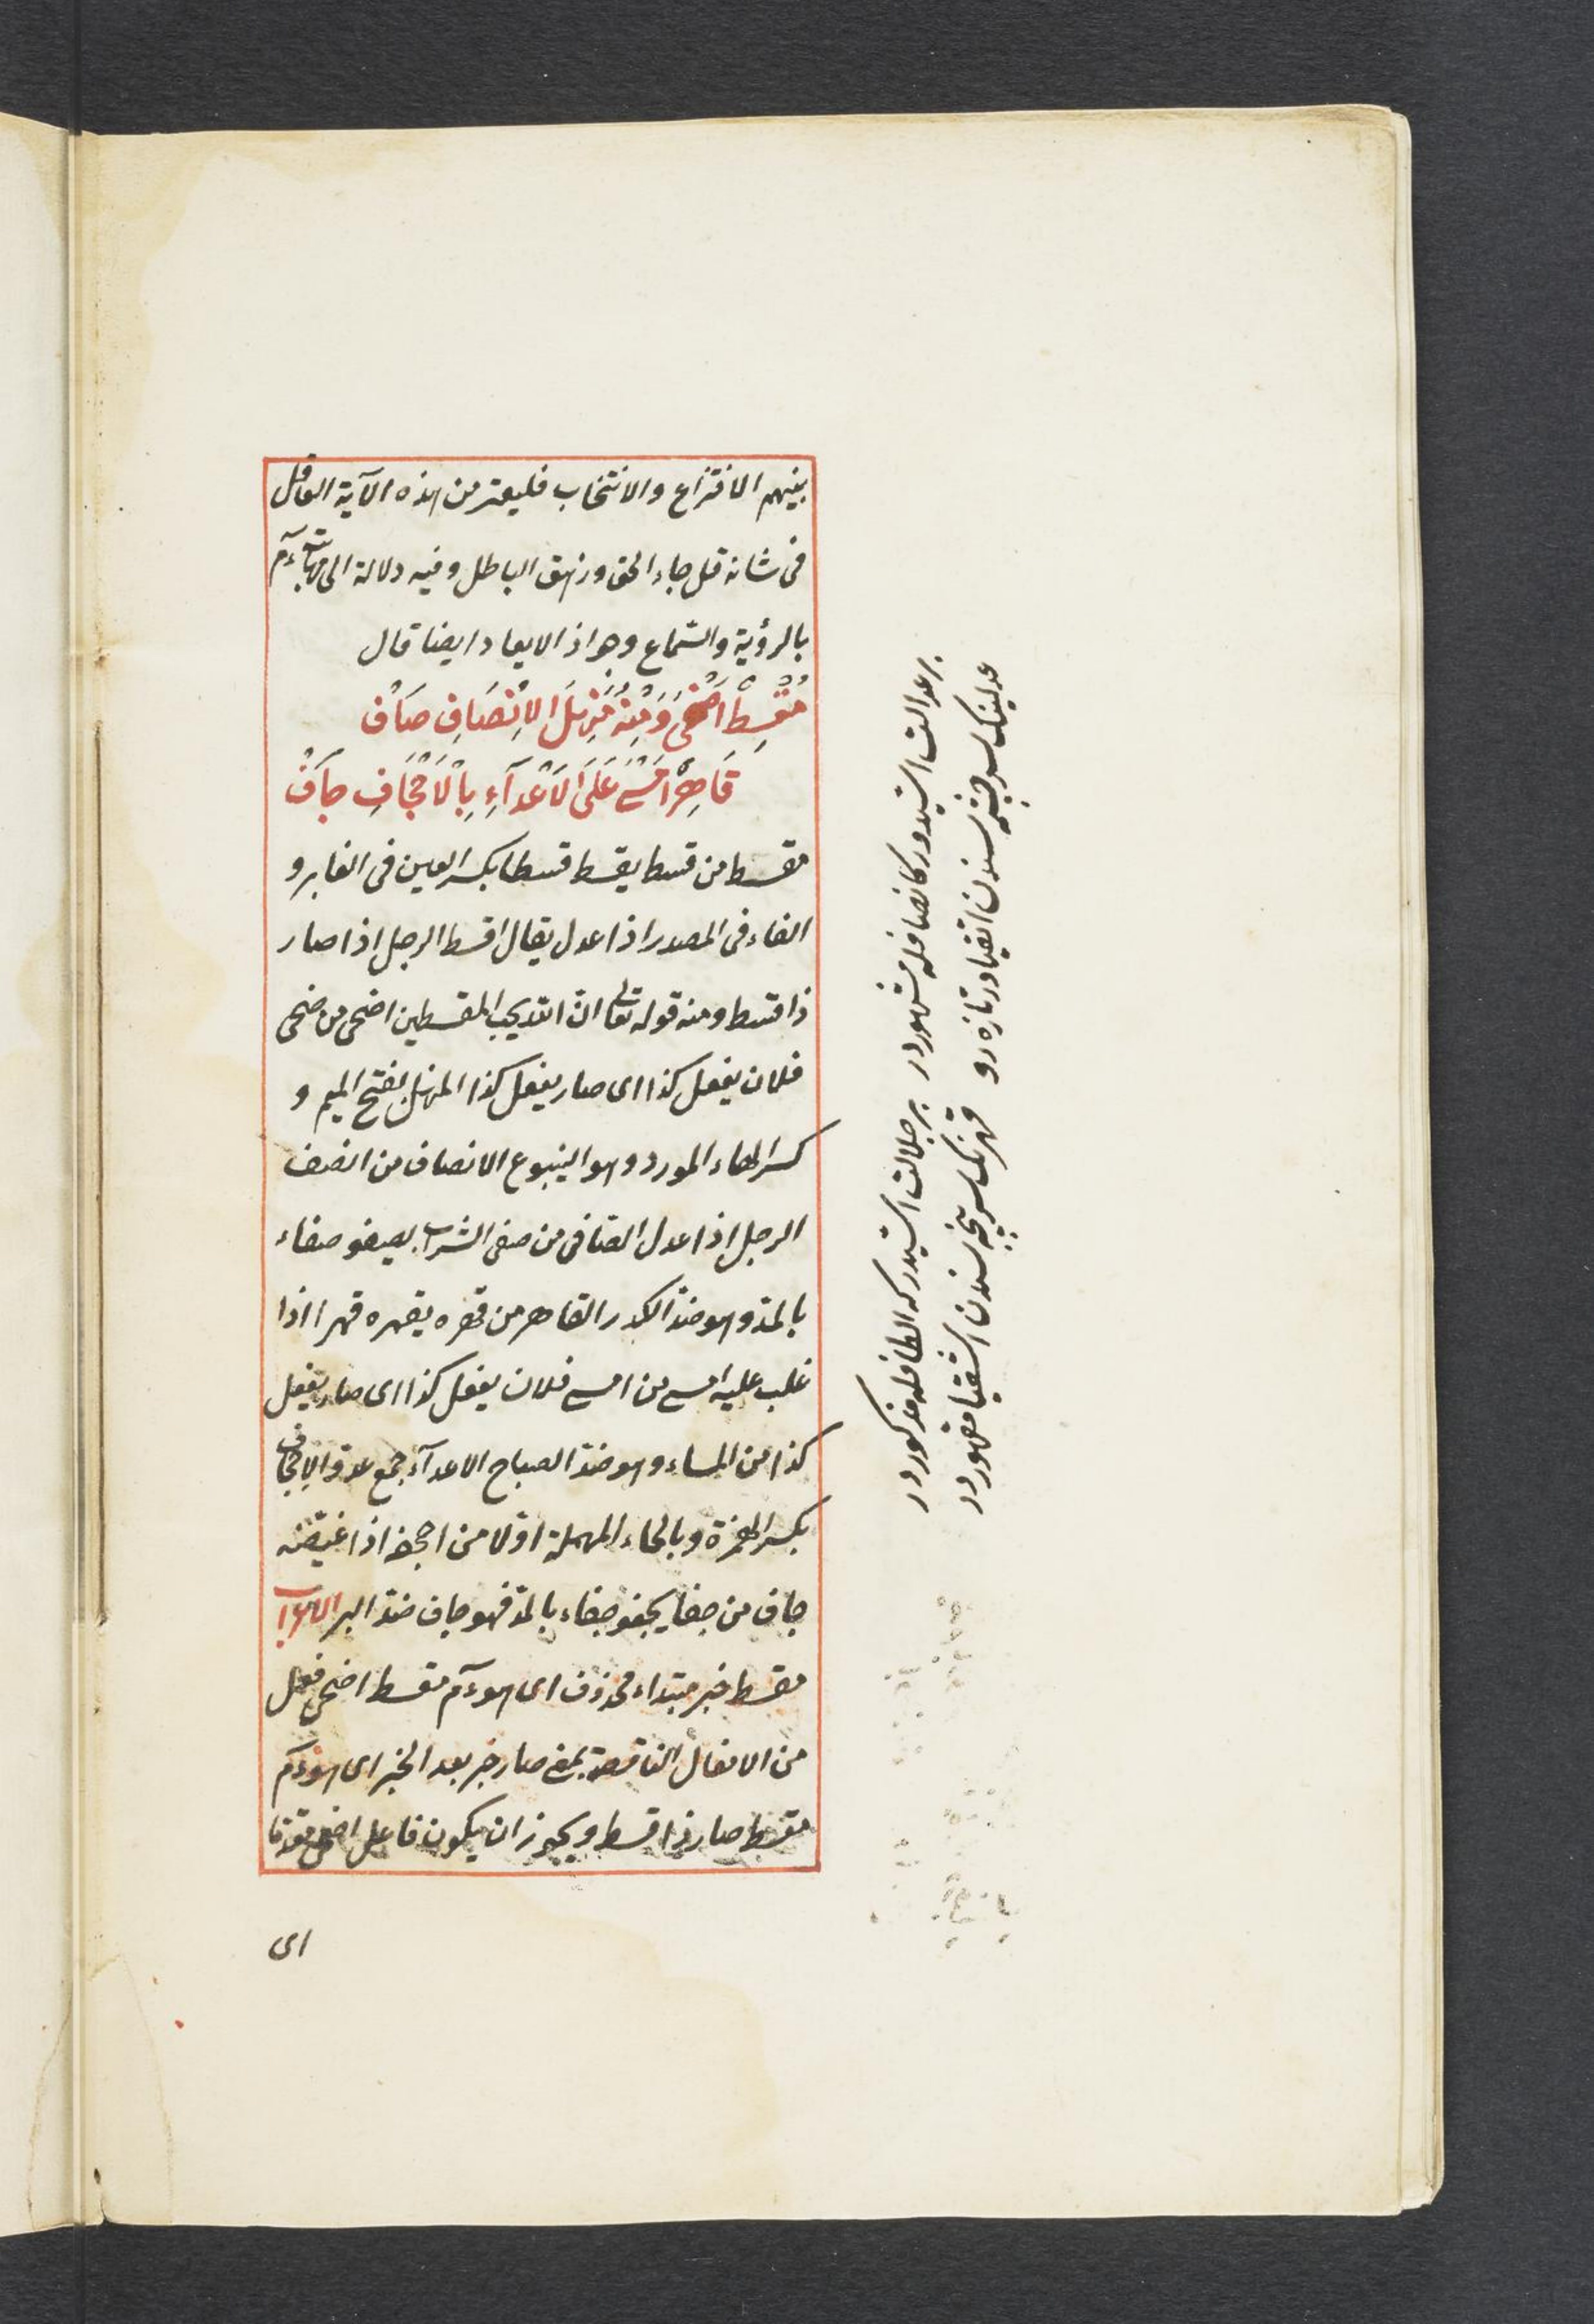 بينهم الافتراع والانتخاب فليعتبر من هذه الآية العاقل
فى شانه قل جاء الحق وزهق الباطل وفيه دلالة الى
بالرؤية والسّماع وجواز الايعاد ايضا قال
مُقْسِطٌ اَضْحَى وَمِنْهُ مَنْهَلُ الاِنْصَافِ صَافْ
قَاهِرٌ اَمْسَى عَلَى الاَعْدَآءِ بِالْاِجْحَافِ جَافْ
مقسط من قسط يقسط قسطا بكسر العين فى الغابر و
الفاء فى المصدر اذا عدل يقال اقسط الرجل اذا صار
ذا قسط ومنه قوله تعالى انّ الله يحب المقسطين اضحى من ضحى
فلان يفعل كذا اى صار يفعل كذا المنهل بفتح الميم و
كسر الهاء المورد وهو الينبوع الانصاف من انصف
الرجل اذا عدل الصّافى من صفى الشراب يصفو صفاء
بالمدّ وهو ضدّ الكدر القاهر من قهره يقهره قهرا اذا
غلب عليه امسى من امسى فلان يفعل كذا اى صار يفعل
كذا من المساء وهو ضدّ الصباح الاعدآء جمع عدوّ الاجحاف
بكسر الهمزة وبالحاء المهملة اوّلا من اجحف اذا
جاف من جفا يجفو جفاء بالمدّ فهو جاف ضدّ البر الاعراب
مقسط خبر مبتداء محذوف اى هو مقسط اضحى فعل
من الافعال الناقصة بمعنى صار خبر بعد الخبر اى هو
مقسط صار ذا قسط ويجوز ان يكون فاعل اضحى
اى
بر عدالت ايتدى در كه انصافله مشهوردر
عدلينك سرچشمه سندن اتقيا در تازه رو
بر جلالت ايتدى در كه الطافله مذكوردر
قهرنك سرپنجه سندن اشقيا مقهوردر